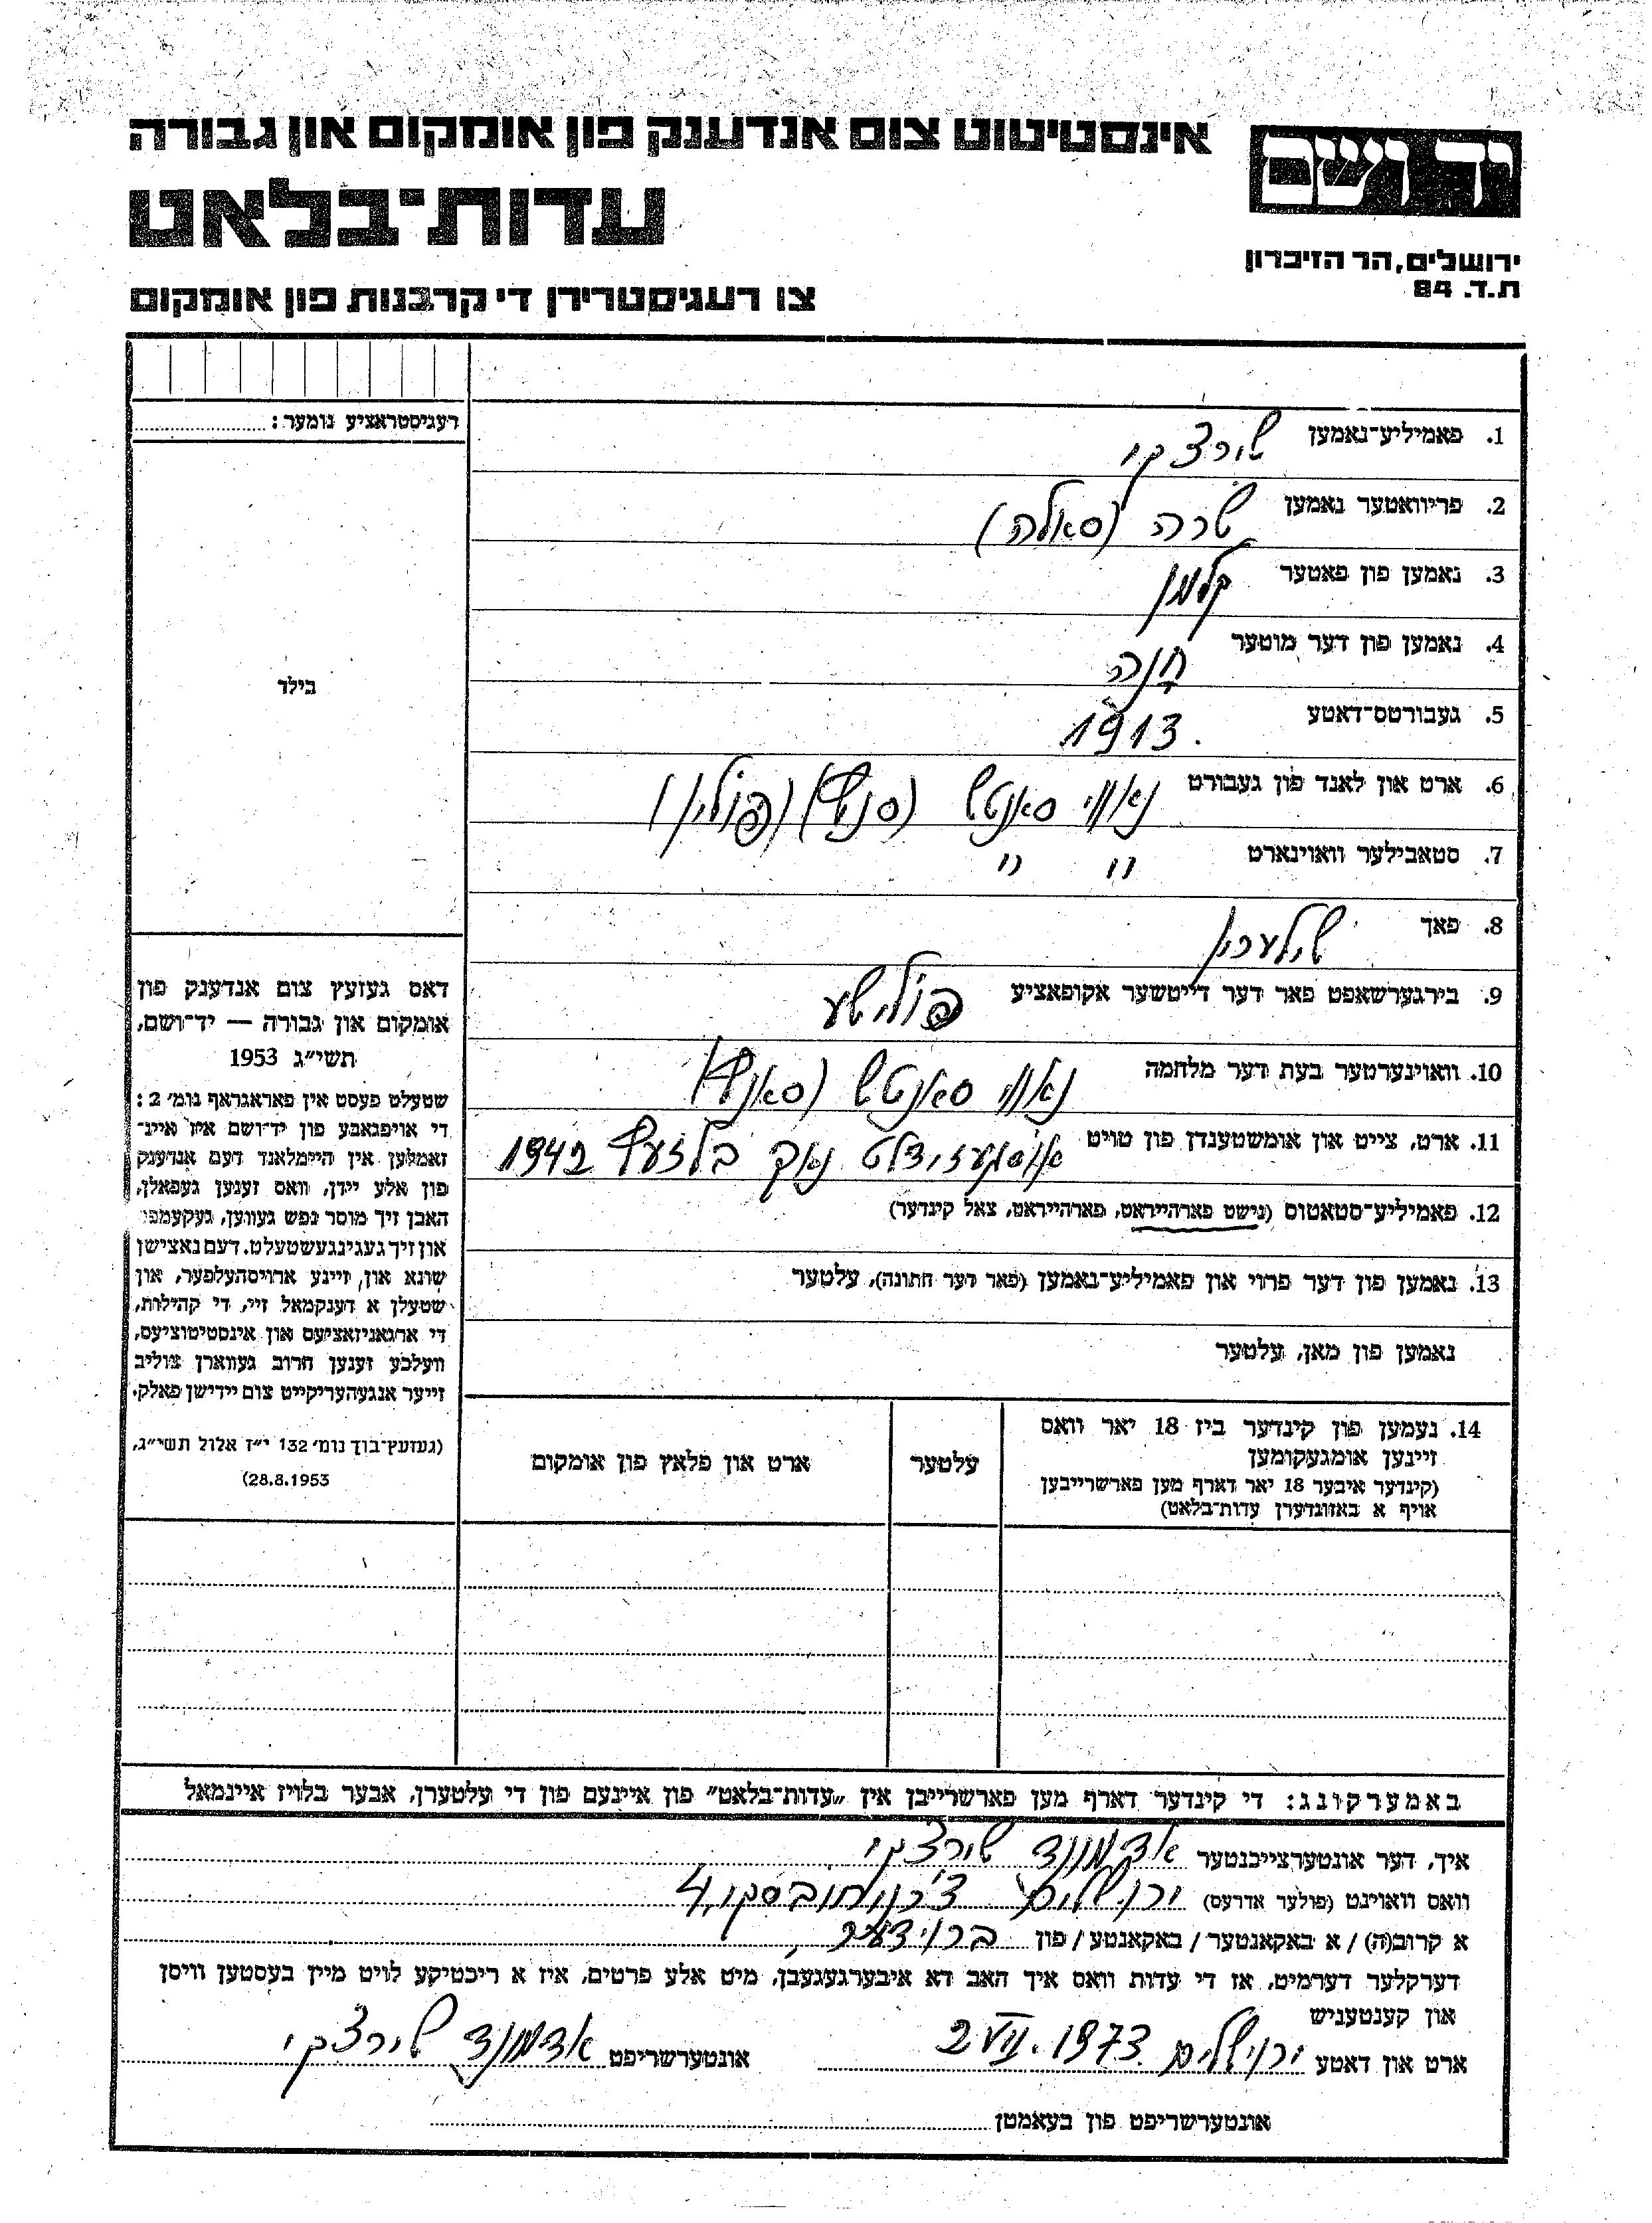 אינסטיטוט צום אנדענק פון אומקום און גבורה
יד ושם
עדות־בלאט
ירושלים, הר הזיכרון
ת.ד. 84
צו רעגיסטרירן די קרבנות פון אומקום
רעגיסטראציע נומער:
בילד
1. פאמיליע־נאמען שורצקי
2. פריוואטער נאמען שרה (סאלה)
3. נאמען פון פאטער קלמן
4. נאמען פון דער מוטער חנה
5. געבורטס־דאטע 1913.
6. ארט און לאנד פון געבורט נאווי סאנטש (סניץ) (פולין)
7. סטאבילער וואוינארט " "
8. פאך
9. בירגערשאפט פאר דער דייטשער אקופאציע פוילישע
10. וואוינערטער בעת דער מלחמה נאווי סאנטש (סאנץ)
11. ארט, צייט און אומשטענדן פון טויט אויסגעזידלט נאך בלזעץ 1942
12. פאמיליע־סטאטוס (נישט פארהייראט, פארהייראט, צאל קינדער)
13. נאמען פון דער פרוי און פאמיליע־נאמען (פאר דער חתונה), עלטער
נאמען פון מאן, עלטער
דאס געזעץ צום אנדענק פון
אומקום און גבורה — יד־ושם,
תשי״ג 1953
שטעלט פעסט אין פאראגראף נומ׳ 2:
די אויפגאבע פון יד־ושם איז איינ־
זאמלען אין היימלאנד דעם אנדענק
פון אלע יידן, וואס זענען געפאלן,
האבן זיך מוסר נפש געווען, געקעמפט
און זיך געגינגעשטעלט. דעם נאצישן
שונא און, זיינע ארויסהעלפער, און
שטעלן א דענקמאל זיי, די קהילות,
די ארגאניזאציעס און אינסטיטוציעס,
וועלכע זענען חרוב געווארן צוליב
זייער אנגעהעריקייט צום יידישן פאלק.
(געזעץ־בוך נומ׳ 132 י״ז אלול תשי״ג,
28.8.1953)
14. נעמען פון קינדער ביז 18 יאר וואס
זיינען אומגעקומען
(קינדער איבער 18 יאר דארף מען פארשרייבען
אויף א באזונדערן עדות־בלאט)
עלטער
ארט און פלאץ פון אומקום
באמערקונג: די קינדער דארף מען פארשרייבן אין „עדות־בלאט״ פון איינעם פון די עלטערן, אבער בלויז איינמאל
איך, דער אונטערצייכנטער אדמונד שורצקי
וואס וואוינט (פולער אדרעס) ירושלים צ'רניחובסקי 4
א קרוב(ה) / א באקאנטער / באקאנטע / פון ברוידער,
דערקלער דערמיט, אז די עדות וואס איך האב דא איבערגעגעבן, מיט אלע פרטים, איז א ריכטיקע לויט מיין בעסטען וויסן
און קענטעניש
ארט און דאטע ירושלים 2 VII. 1973 אונטערשריפט אדמונד שורצקי
אונטערשריפט פון בעאמטן